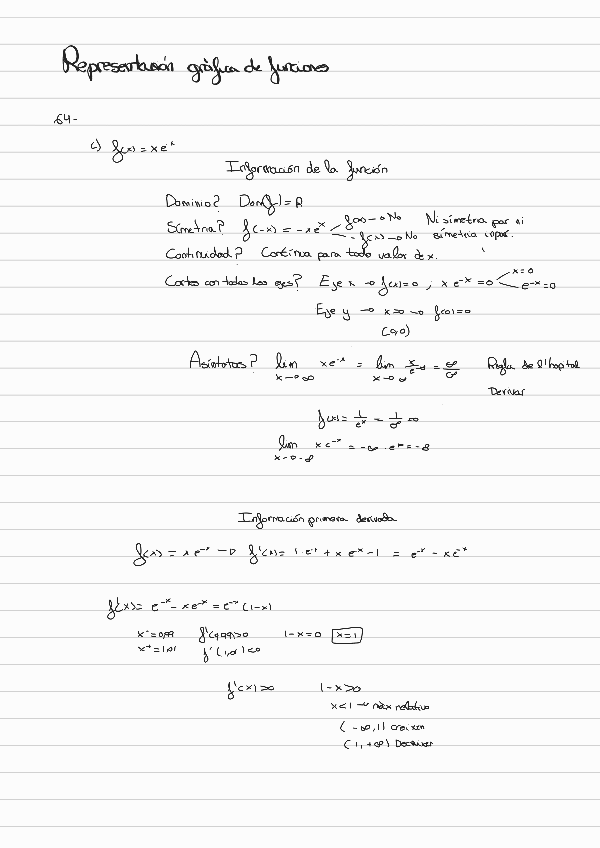 Representación gráfica de funciones
64-
c) f(x) = x e^-x
Información de la función
Dominio? Dom(f) = R
Simetria? f(-x) = -x e^x f(x) → No Ni simetria par ni
-f(x) → No simetria impar.
Continuidad? Continua para todo valor de x.
Cortes con todos los ejes? Eje x → f(x)=0 ; x e^-x = 0 x=0
e^-x=0
Eje y → x=0 → f(0)=0
(0,0)
Asíntotas? lim x e^-x = lim x/e^x = ∞/∞ Regla de l'hopital
x→∞ x→∞ Derivar
f(x) = 1/e^x = 1/∞ = 0
lim x e^-x = -∞ · e^∞ = -∞
x→-∞
Información primera derivada
f(x) = x e^-x → f'(x) = 1·e^-x + x e^-x -1 = e^-x - x e^-x
f'(x) = e^-x - x e^-x = e^-x (1-x)
x^- = 0,99 f'(0,99)>0 1-x=0 x=1
x^+ = 1,01 f'(1,01)<0
f'(x)>0 1-x>0
x<1 → máx relativo
(-∞,1) creixen
(1,+∞)